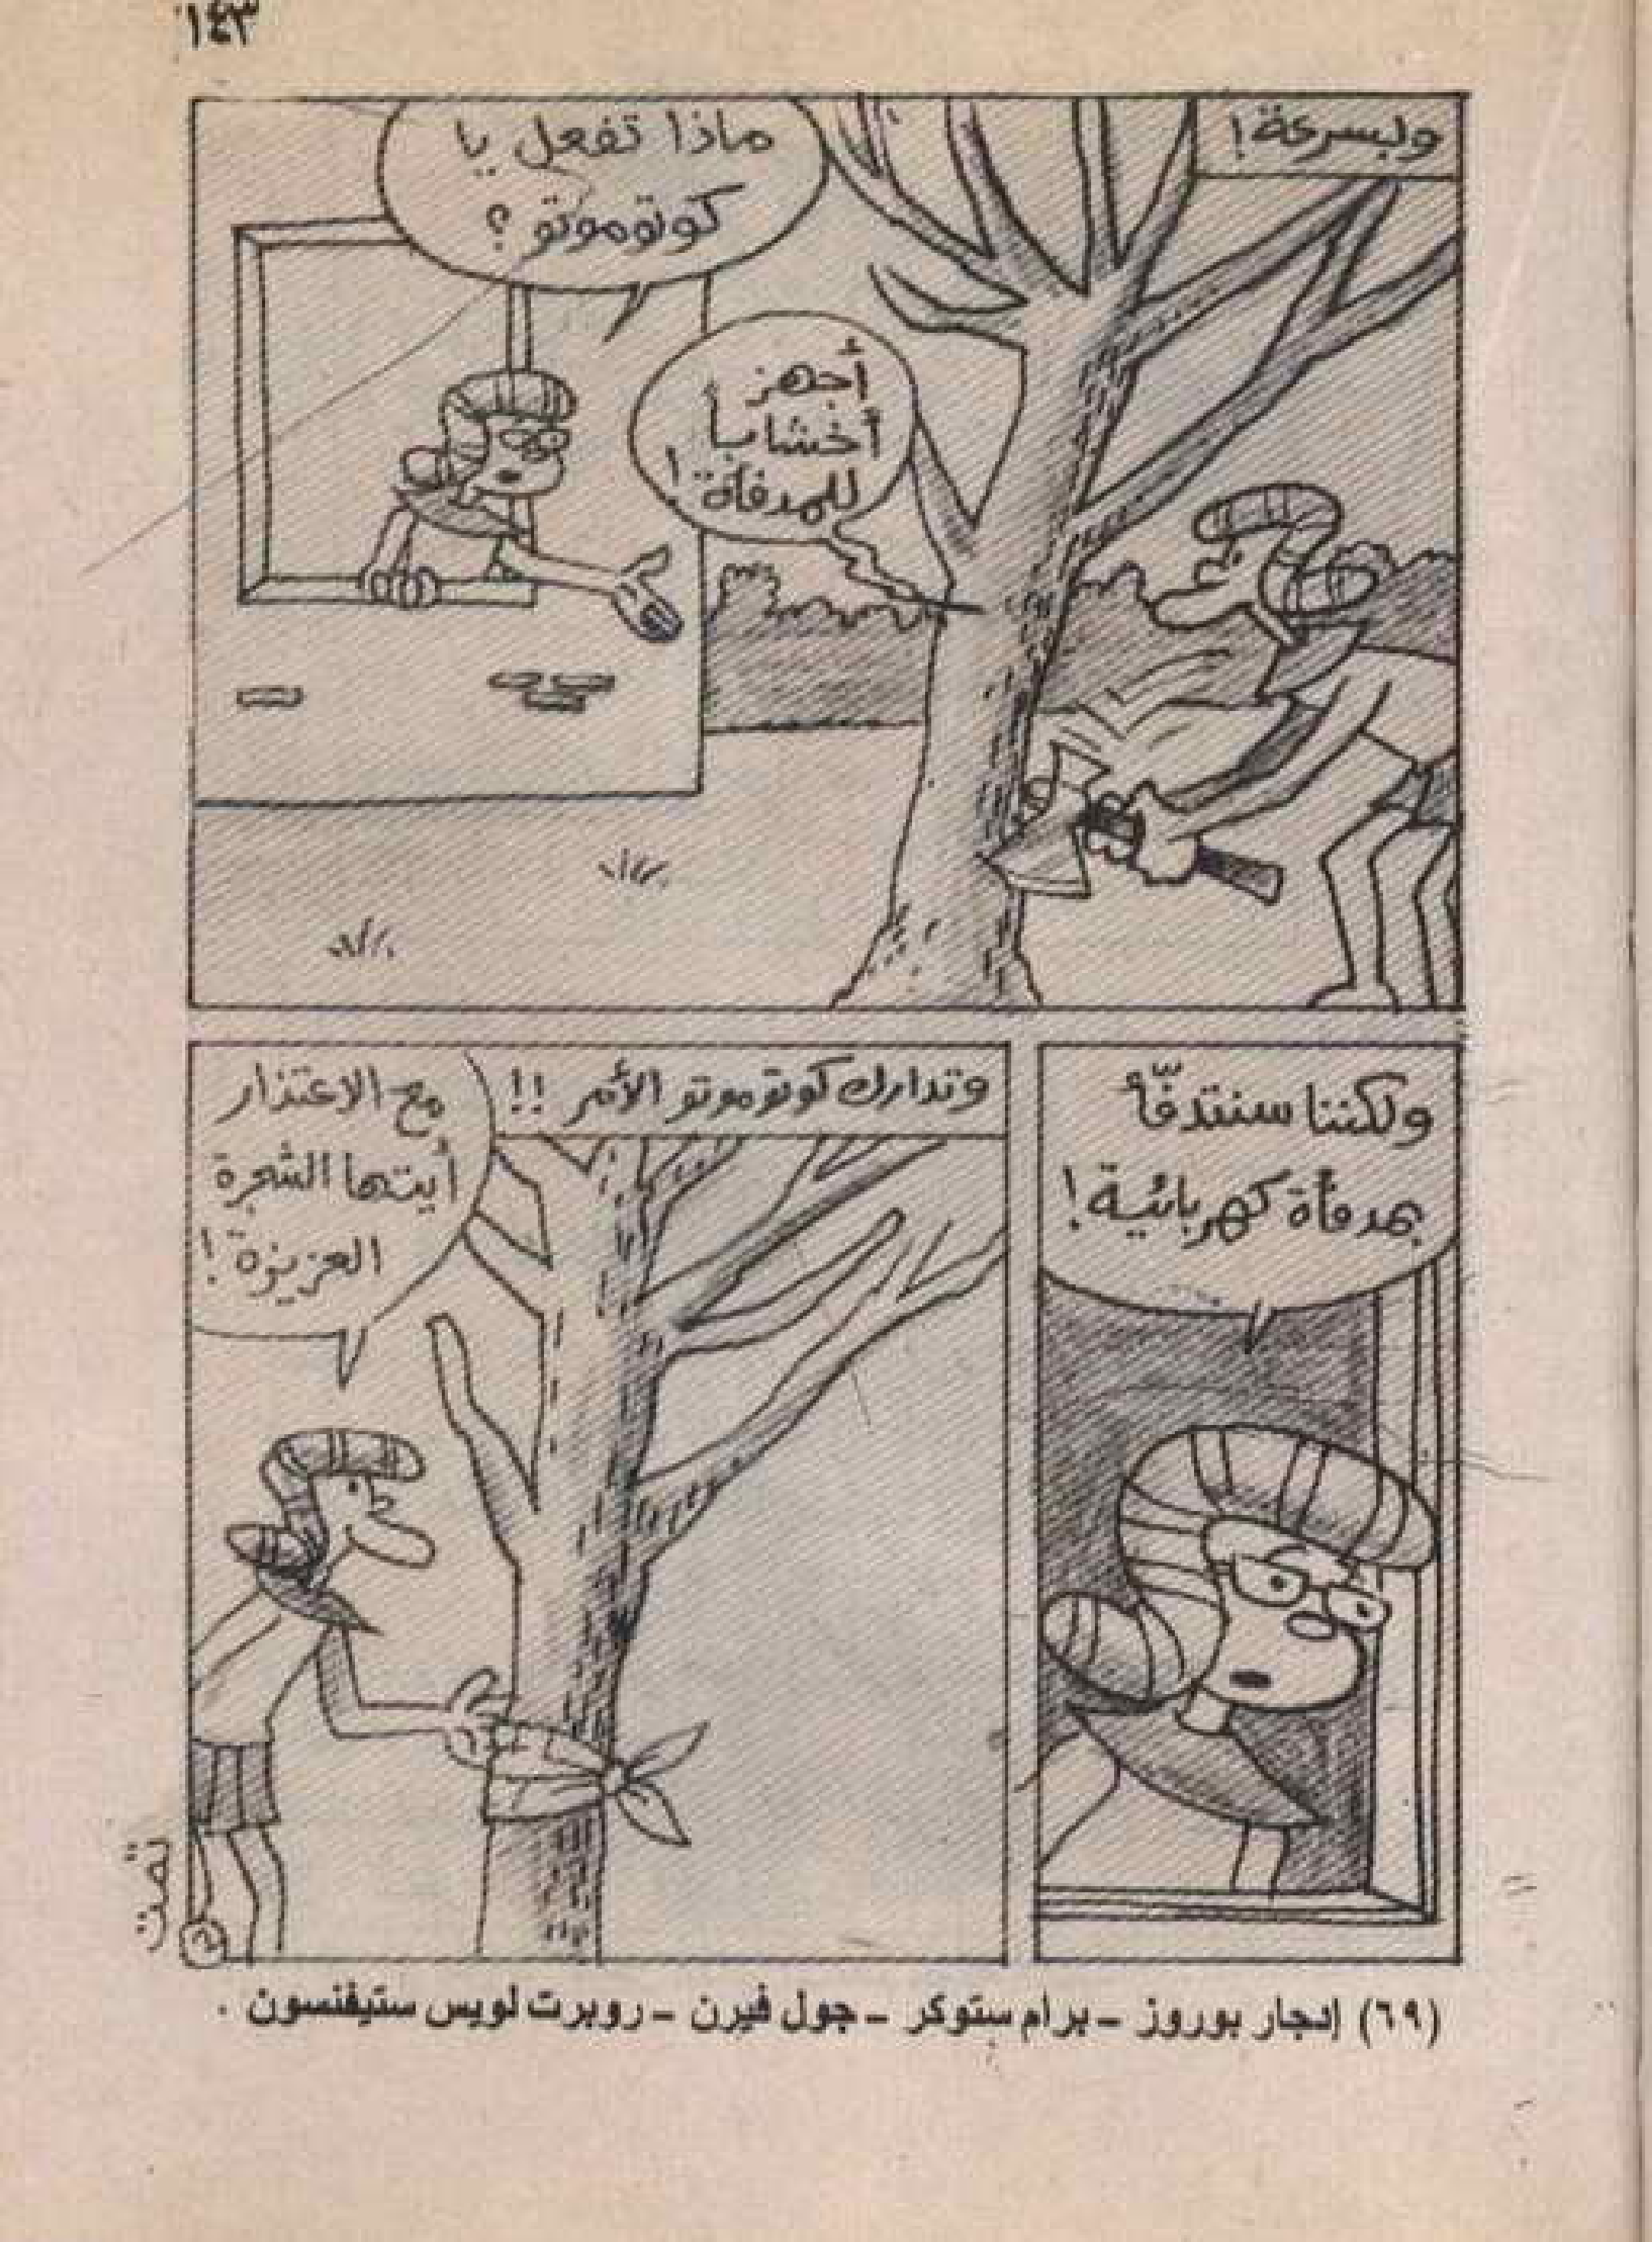 ١٤٣
وبسرعة!
ماذا تفعل يا
كوتوموتو؟
أجهز
أخشاباً
للمدفأة!
ولكننا سنتدفّأ
بمدفأة كهربائية!
وتدارك كوتوموتو الأمر!!
مع الاعتذار
أيتها الشجرة
العزيزة!
تمت
(٦٩) إدجار بوروز - برام ستوكر - جول فيرن - روبرت لويس ستيفنسون .